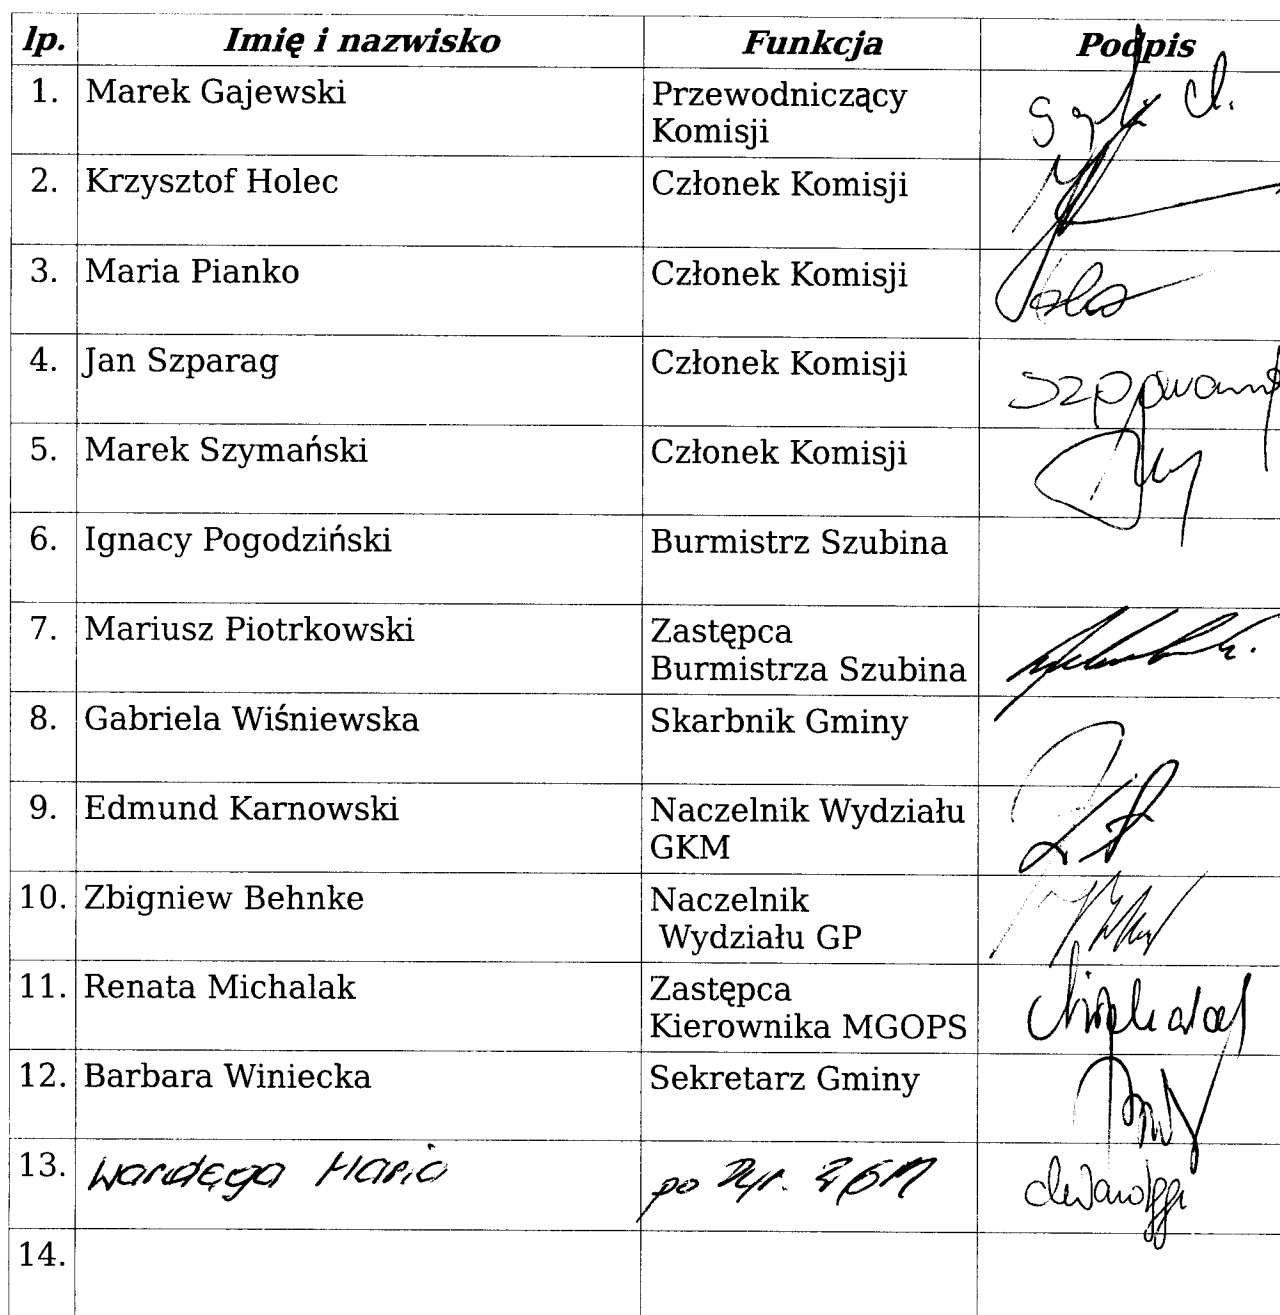 lp. Imię i nazwisko Funkcja Podpis
1. Marek Gajewski Przewodniczący
Komisji
2. Krzysztof Holec Członek Komisji
3. Maria Pianko Członek Komisji
4. Jan Szparag Członek Komisji
5. Marek Szymański Członek Komisji
6. Ignacy Pogodziński Burmistrz Szubina
7. Mariusz Piotrkowski Zastępca
Burmistrza Szubina
8. Gabriela Wiśniewska Skarbnik Gminy
9. Edmund Karnowski Naczelnik Wydziału
GKM
10. Zbigniew Behnke Naczelnik
Wydziału GP
11. Renata Michalak Zastępca
Kierownika MGOPS
12. Barbara Winiecka Sekretarz Gminy
13. Wardęga Maria po Dyr. ZGM
14.